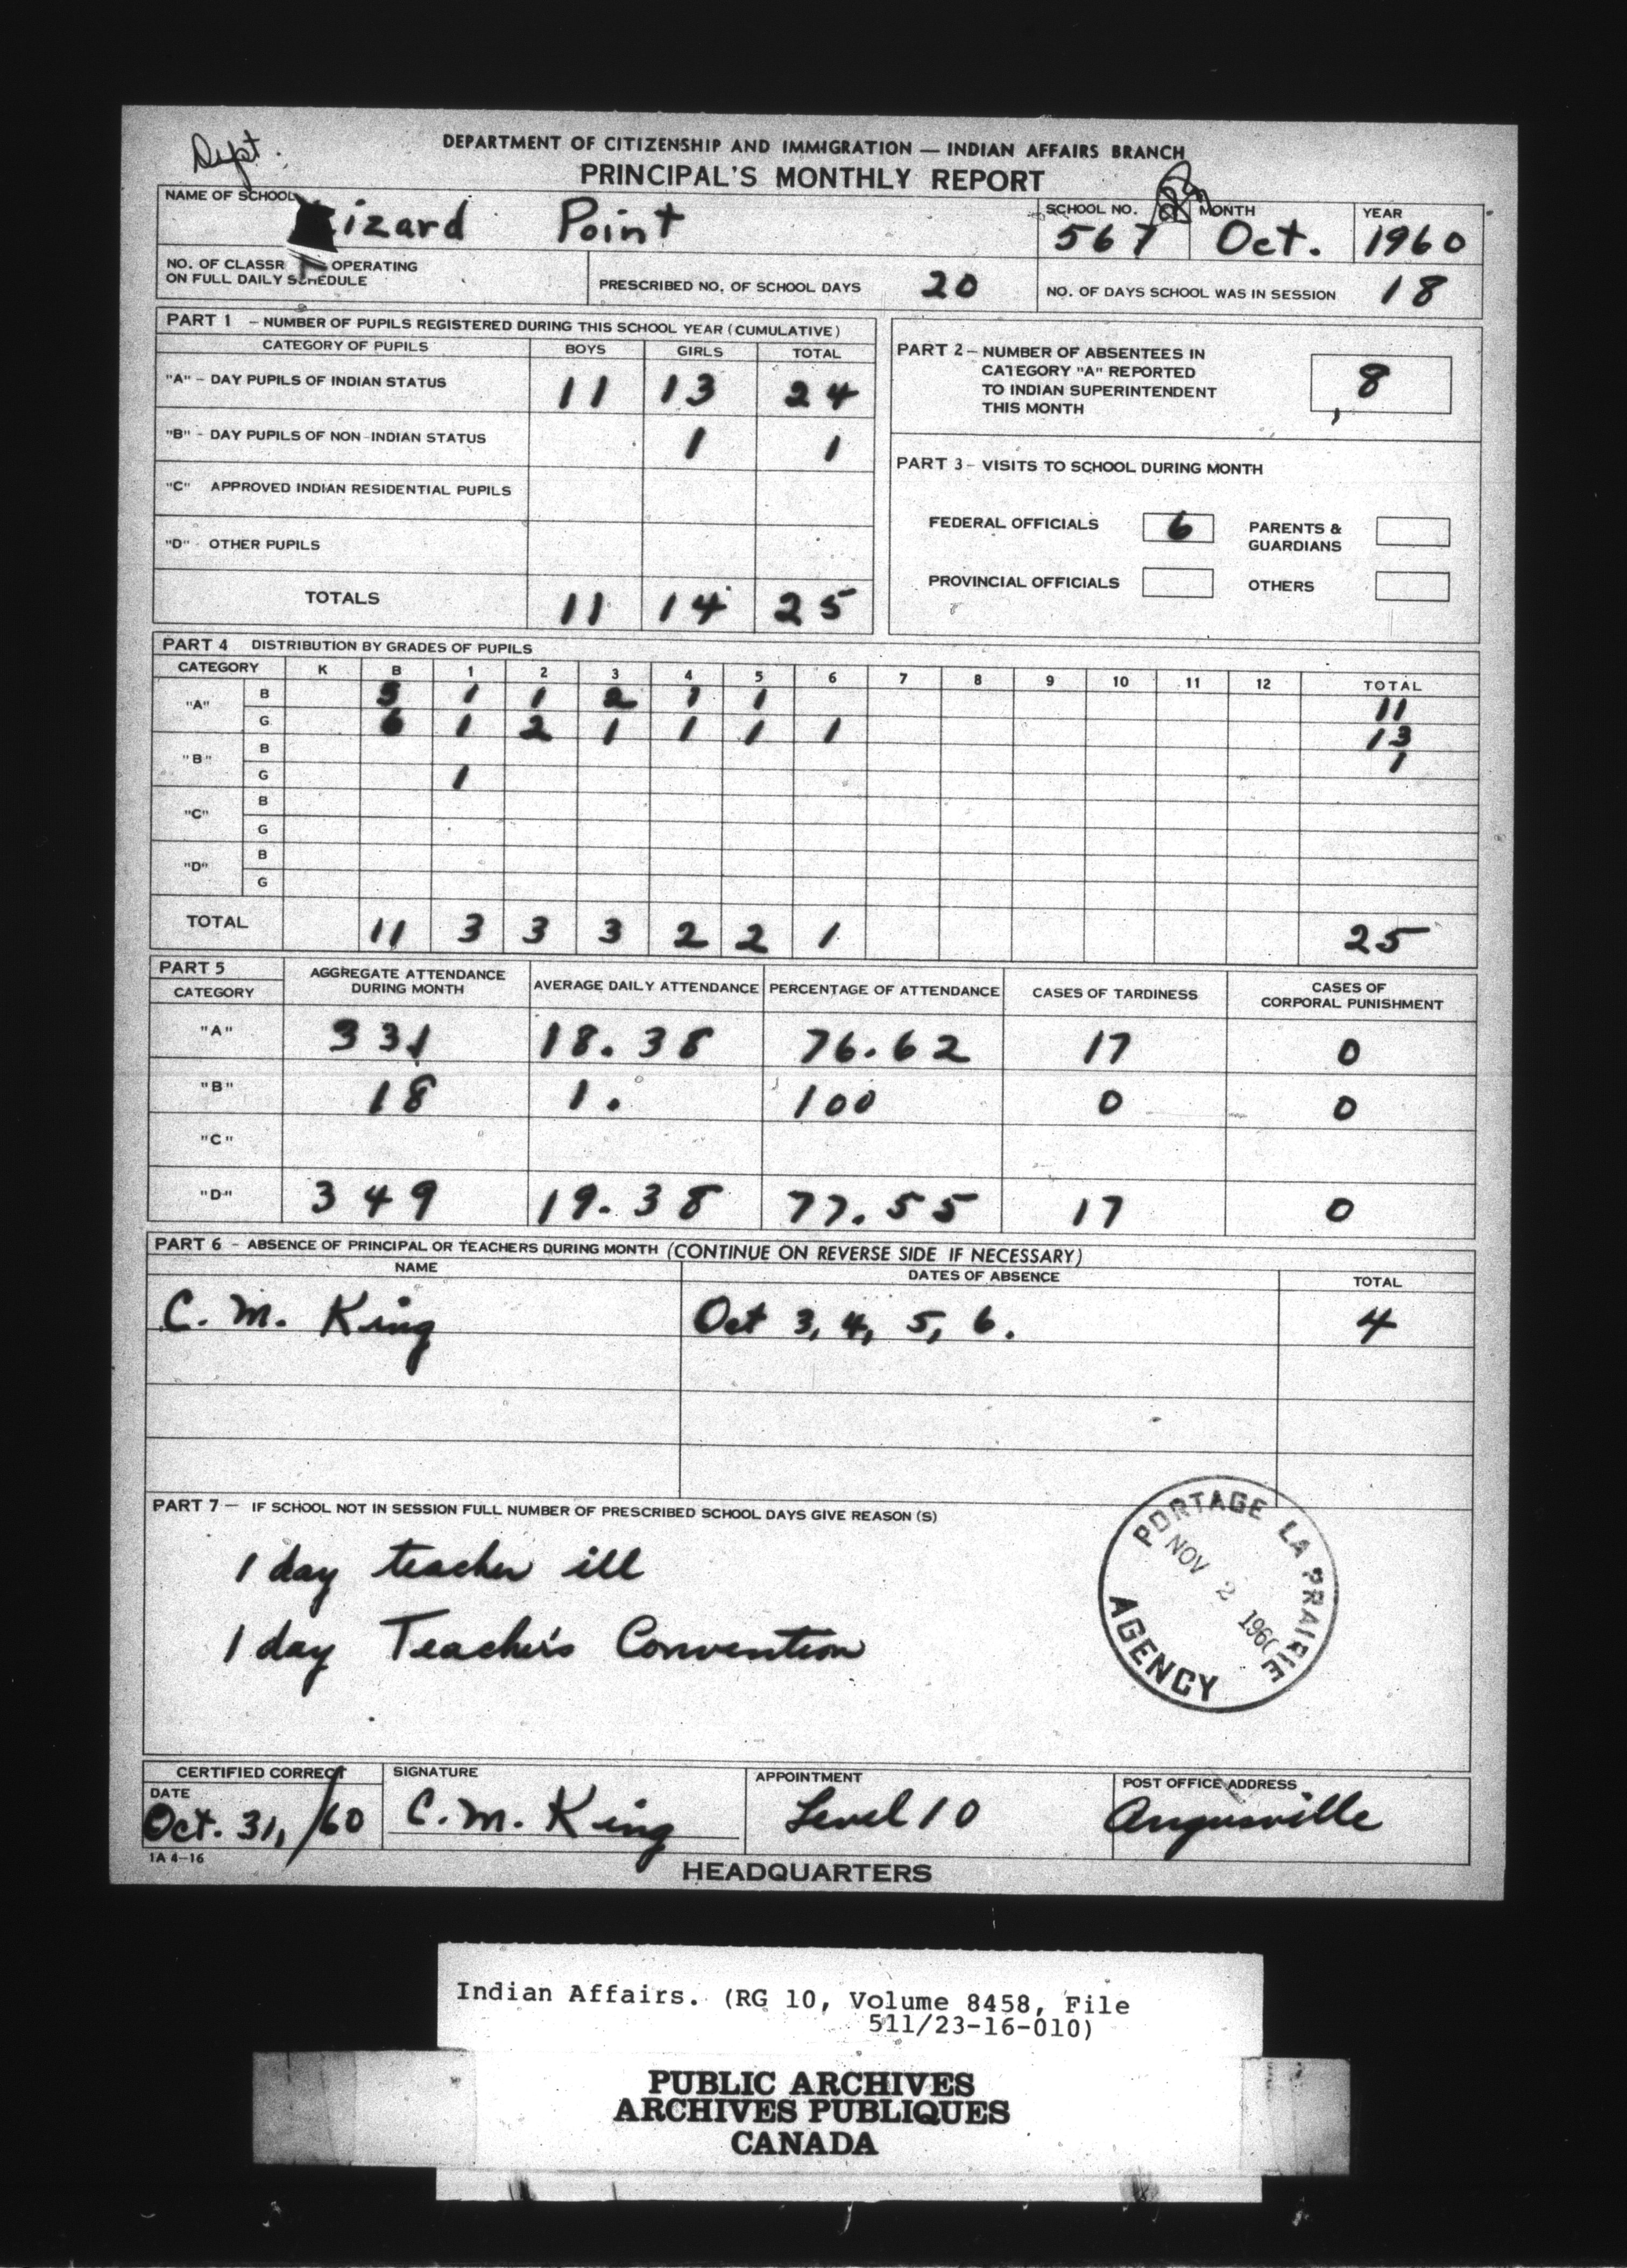 Dept.
DEPARTMENT OF CITIZENSHIP AND IMMIGRATION — INDIAN AFFAIRS BRANCH
PRINCIPAL'S MONTHLY REPORT
NAME OF SCHOOL izard Point
SCHOOL NO. 567
MONTH Oct.
YEAR 1960
NO. OF CLASSR OPERATING
ON FULL DAILY SCHEDULE
PRESCRIBED NO. OF SCHOOL DAYS 20
NO. OF DAYS SCHOOL WAS IN SESSION 18
PART 1 – NUMBER OF PUPILS REGISTERED DURING THIS SCHOOL YEAR (CUMULATIVE)
CATEGORY OF PUPILS BOYS GIRLS TOTAL
"A" – DAY PUPILS OF INDIAN STATUS 11 13 24
"B" – DAY PUPILS OF NON-INDIAN STATUS 1 1
"C" APPROVED INDIAN RESIDENTIAL PUPILS
"D" - OTHER PUPILS
TOTALS 11 14 25
PART 2 – NUMBER OF ABSENTEES IN
CATEGORY "A" REPORTED
TO INDIAN SUPERINTENDENT
THIS MONTH 8
PART 3 – VISITS TO SCHOOL DURING MONTH
FEDERAL OFFICIALS 6 PARENTS &
GUARDIANS
PROVINCIAL OFFICIALS OTHERS
PART 4 DISTRIBUTION BY GRADES OF PUPILS
CATEGORY K B 1 2 3 4 5 6 7 8 9 10 11 12 TOTAL
"A" B 5 1 1 2 1 1 11
G 6 1 2 1 1 1 1 13
"B" B 1
G 1
"C" B
G
"D" B
G
TOTAL 11 3 3 3 2 2 1 25
PART 5
CATEGORY AGGREGATE ATTENDANCE
DURING MONTH AVERAGE DAILY ATTENDANCE PERCENTAGE OF ATTENDANCE CASES OF TARDINESS CASES OF
CORPORAL PUNISHMENT
"A" 331 18.38 76.62 17 0
"B" 18 1. 100 0 0
"C"
"D" 349 19.38 77.55 17 0
PART 6 – ABSENCE OF PRINCIPAL OR TEACHERS DURING MONTH (CONTINUE ON REVERSE SIDE IF NECESSARY)
NAME DATES OF ABSENCE TOTAL
C. M. King Oct 3, 4, 5, 6. 4
PART 7 — IF SCHOOL NOT IN SESSION FULL NUMBER OF PRESCRIBED SCHOOL DAYS GIVE REASON (S)
1 day teacher ill
1 day Teacher's Convention
PORTAGE LA PRAIRIE
NOV 2 1960
AGENCY
CERTIFIED CORRECT
DATE Oct. 31, /60
SIGNATURE C. M. King
APPOINTMENT Level 10
POST OFFICE ADDRESS Angusville
1A 4–16
HEADQUARTERS
Indian Affairs. (RG 10, Volume 8458, File
511/23-16-010)
PUBLIC ARCHIVES
ARCHIVES PUBLIQUES
CANADA